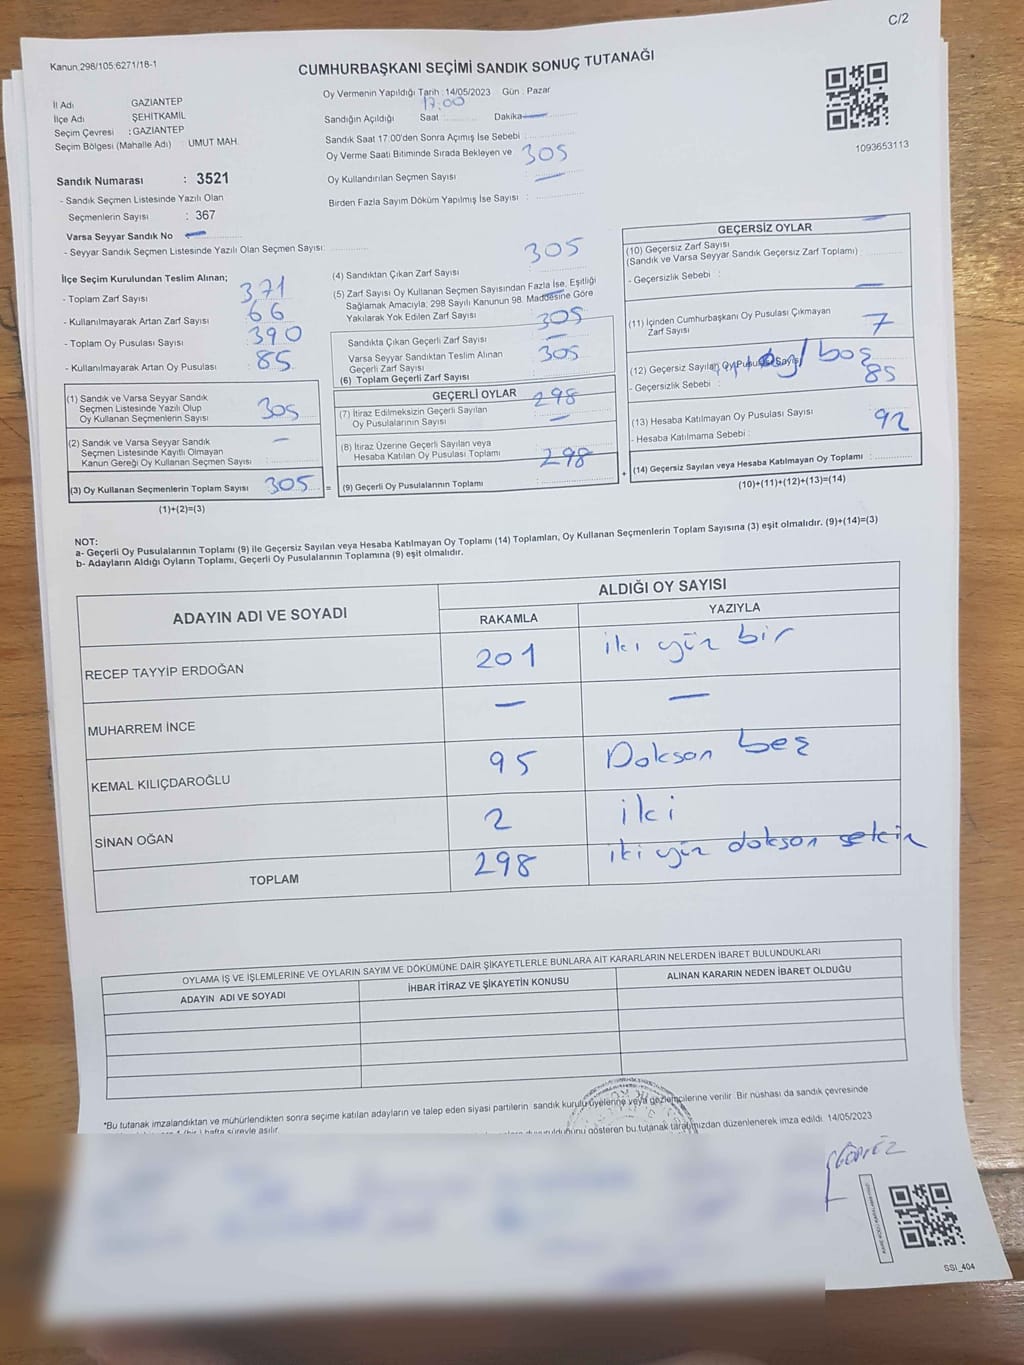 C/2
Kanun,298/105;6271/18-1
CUMHURBAŞKANI SEÇİMİ SANDIK SONUÇ TUTANAĞI
İl Adı GAZİANTEP
İlçe Adı ŞEHİTKAMİL
Seçim Çevresi : GAZİANTEP
Seçim Bölgesi (Mahalle Adı) : UMUT MAH.
Oy Vermenin Yapıldığı Tarih : 14/05/2023 Gün : Pazar
Sandığın Açıldığı Saat 17.00 Dakika —
Sandık Saat 17:00'den Sonra Açımış İse Sebebi :
Oy Verme Saati Bitiminde Sırada Bekleyen ve 305
Oy Kullandırılan Seçmen Sayısı : —
Birden Fazla Sayım Döküm Yapılmış İse Sayısı :
1093653113
Sandık Numarası : 3521
- Sandık Seçmen Listesinde Yazılı Olan
Seçmenlerin Sayısı : 367
Varsa Seyyar Sandık No —
- Seyyar Sandık Seçmen Listesinde Yazılı Olan Seçmen Sayısı:
İlçe Seçim Kurulundan Teslim Alınan;
- Toplam Zarf Sayısı 371
- Kullanılmayarak Artan Zarf Sayısı 66
- Toplam Oy Pusulası Sayısı 390
- Kullanılmayarak Artan Oy Pusulası 85
(1) Sandık ve Varsa Seyyar Sandık
Seçmen Listesinde Yazılı Olup
Oy Kullanan Seçmenlerin Sayısı 305
(2) Sandık ve Varsa Seyyar Sandık
Seçmen Listesinde Kayıtlı Olmayan
Kanun Gereği Oy Kullanan Seçmen Sayısı : —
(3) Oy Kullanan Seçmenlerin Toplam Sayısı 305 =
(1)+(2)=(3)
305
(4) Sandıktan Çıkan Zarf Sayısı
(5) Zarf Sayısı Oy Kullanan Seçmen Sayısından Fazla İse, Eşitliği
Sağlamak Amacıyla; 298 Sayılı Kanunun 98. Maddesine Göre
Yakılarak Yok Edilen Zarf Sayısı —
Sandıkta Çıkan Geçerli Zarf Sayısı 305
Varsa Seyyar Sandıktan Teslim Alınan —
Geçerli Zarf Sayısı 305
(6) Toplam Geçerli Zarf Sayısı
GEÇERLİ OYLAR
(7) İtiraz Edilmeksizin Geçerli Sayılan 298
Oy Pusulalarının Sayısı —
(8) İtiraz Üzerine Geçerli Sayılan veya
Hesaba Katılan Oy Pusulası Toplamı 298
(9) Geçerli Oy Pusulalarının Toplamı +
GEÇERSİZ OYLAR
(10) Geçersiz Zarf Sayısı —
(Sandık ve Varsa Seyyar Sandık Geçersiz Zarf Toplamı) :
- Geçersizlik Sebebi :
(11) İçinden Cumhurbaşkanı Oy Pusulası Çıkmayan —
Zarf Sayısı 7
(12) Geçersiz Sayılan Oy Pusulası Sayısı boş
- Geçersizlik Sebebi : 85
(13) Hesaba Katılmayan Oy Pusulası Sayısı 92
- Hesaba Katılmama Sebebi :
(14) Geçersiz Sayılan veya Hesaba Katılmayan Oy Toplamı :
(10)+(11)+(12)+(13)=(14)
NOT:
a- Geçerli Oy Pusulalarının Toplamı (9) ile Geçersiz Sayılan veya Hesaba Katılmayan Oy Toplamı (14) Toplamları, Oy Kullanan Seçmenlerin Toplam Sayısına (3) eşit olmalıdır. (9)+(14)=(3)
b- Adayların Aldığı Oyların Toplamı, Geçerli Oy Pusulalarının Toplamına (9) eşit olmalıdır.
ADAYIN ADI VE SOYADI ALDIĞI OY SAYISI
RAKAMLA YAZIYLA
RECEP TAYYİP ERDOĞAN 201 iki yüz bir
MUHARREM İNCE — —
KEMAL KILIÇDAROĞLU 95 Dokson beş
SİNAN OĞAN 2 iki
TOPLAM 298 iki yüz dokson sekiz
OYLAMA İŞ VE İŞLEMLERİNE VE OYLARIN SAYIM VE DÖKÜMÜNE DAİR ŞİKAYETLERLE BUNLARA AİT KARARLARIN NELERDEN İBARET BULUNDUKLARI
ADAYIN ADI VE SOYADI İHBAR İTİRAZ VE ŞİKAYETİN KONUSU ALINAN KARARIN NEDEN İBARET OLDUĞU
*Bu tutanak imzalandıktan ve mühürlendikten sonra seçime katılan adayların ve talep eden siyasi partilerin sandık kurulu üyelerine veya gözlemcilerine verilir. Bir nüshası da sandık çevresinde
hafta süreyle asılır.
gösteren bu tutanak tarafımızdan düzenlenerek imza edildi. 14/05/2023
SSI_404